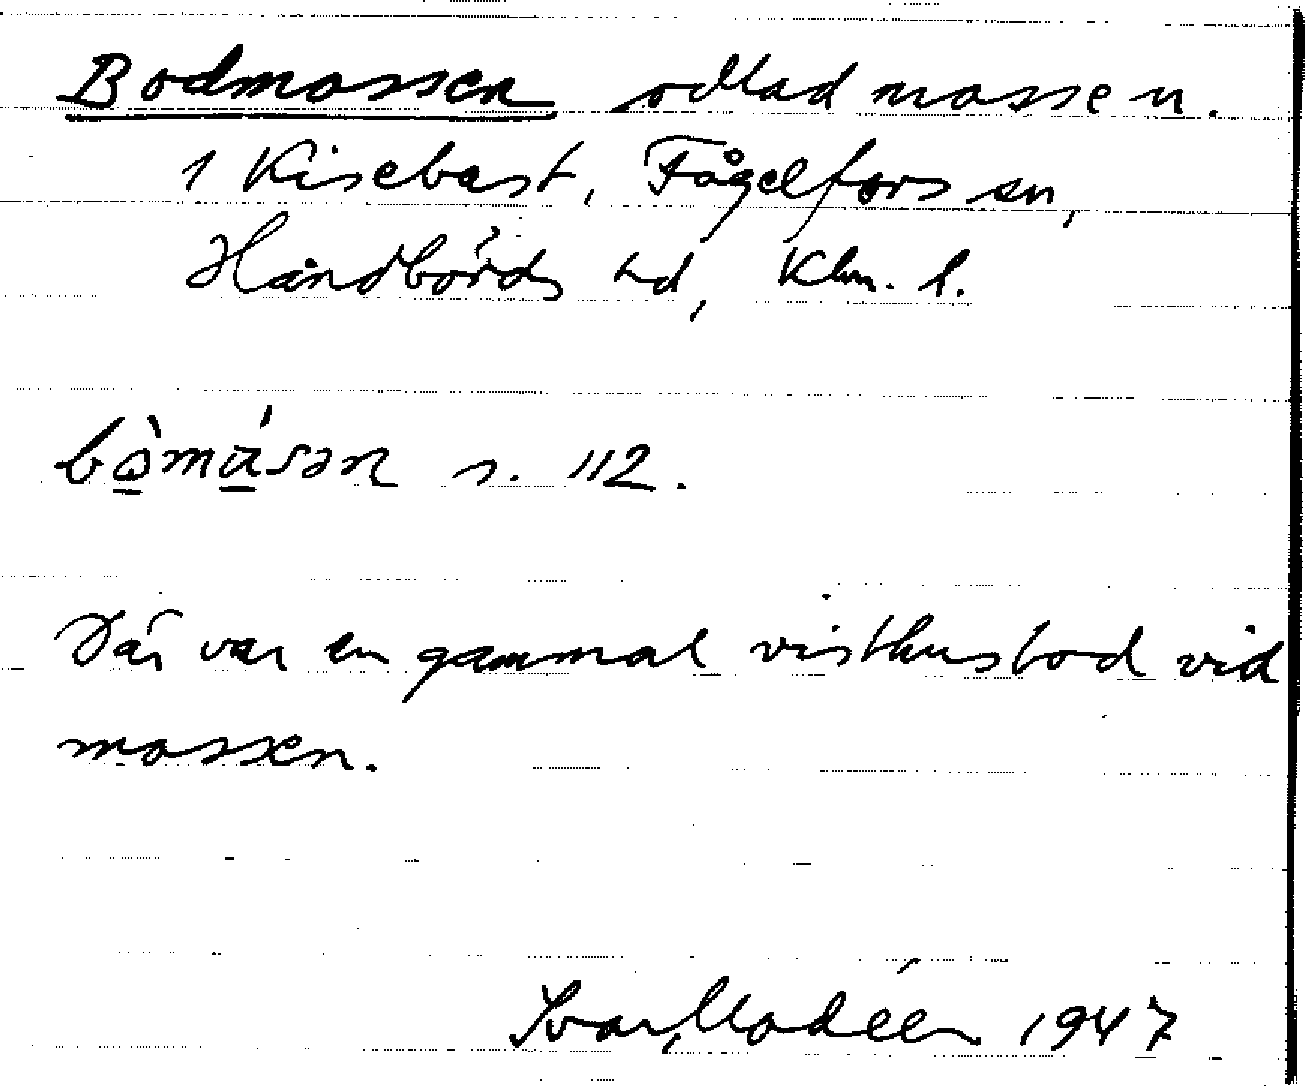 Bodmossen odlad mossen.
1 Kisebast, Fågelfors sn,
Handbörds hd, Klm. l.
bòmásən s. 112.
Där var en gammal visthusbod vid
mossen.
Ivar Modéer 1947